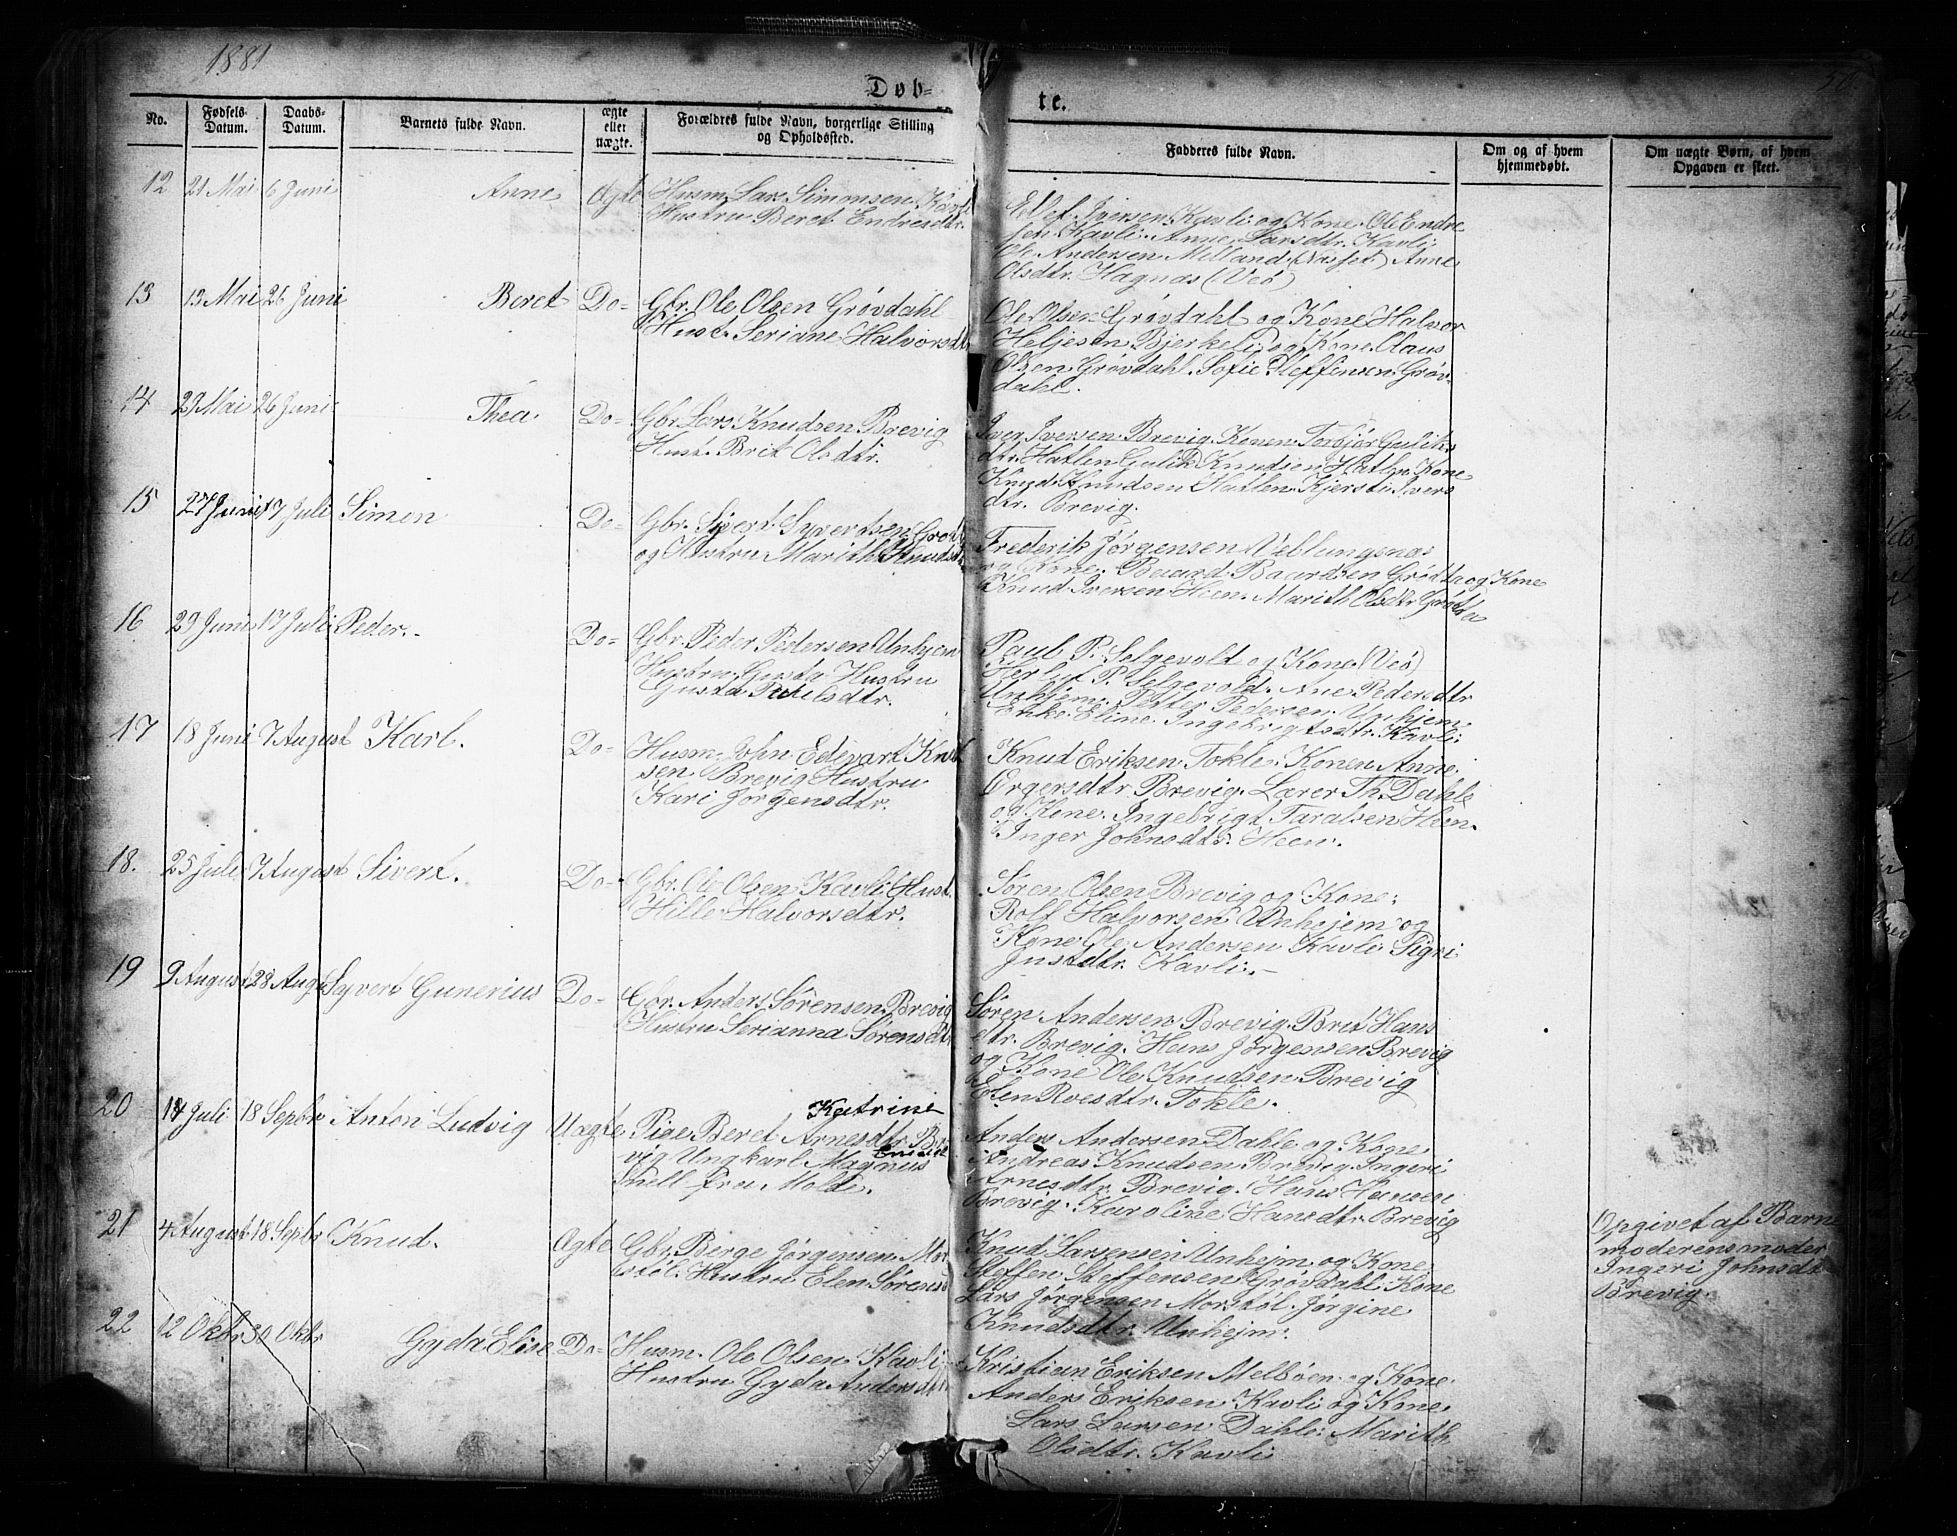 1881
Døb=
te.
No.
Fødsels-
Datum.
Daabs-
Datum.
Barnets fulde Navn.
ægte
eller
uægte.
Forældres fulde Navn, borgerlige Stilling
og Opholdssted.
Fadderes fulde Navn.
Om og af hvem
hjemmedøbt.
Om uægte Børn, af hvem
Opgaven er skeet.
12 21 Mai 6 Juni Anne Ægte Husm. Lars Simonsen Kavli
Hustru Beret Endresdtr.
Iversen Kavli og Kone. Ole Endre
sen Kavli. Anne Larsdtr. Kavli.
Ole Andersen Melland (Næsset) Anne
Olsdtr. Hagnæs (Veø)
13 13 Mai 26 Juni Beret Do= Gbr. Ole Olsen Grøvdahl
Hust. Seriane Halvorsdtr
Ole Olsen Grøvdahl og Kone Halvor
Heljesen Bjerkeli og Kone. Olaus
Olsen Grøvdahl. Sofie Steffensen Grøv-
dahl.
14 23 Mai 26 Juni Thea. Do= Gbr. Lars Knudsen Brevig
Hust. Brit Olsdtr.
Iver Iversen Brevig. Konen Torbjør Guliks
dtr. Hatlen Gulik Knudsen Hatlen Kone
Knud Knudsen Hatlen. Kjersti Ivers
dtr. Brevig.
15 27 Juni 17 Juli Simen Do= Gbr. Sivert Syvertsen Grød
og Hustru Marith Knudsd
Frederik Jørgensen Veblungsnæs
og Kone. Baard Baardsen Grødta og Kone
Knud Iversen Hien. Marith Olsdtr Grødta
16 29 Juni 17 Juli Peder.- Do= Gbr. Peder Pedersen Unhjem
Hustru Gusta Hustru
Gusta Paulsdtr.
Paul P. Selgevold og Kone (Veø)
P. Selgevold. Ane Pedersdtr
Unhjem. Petter Pedersen Unhjem.
Enke Eline Ingebrigtsdtr. Kavli.
17 18 Juni 7 August Karl. Do= Husm. John Edevart Knud
sen Brevig Hustru
Kari Jørgensdtr.
Knud Eriksen Tokle. Konen Anne
Ørgersdtr Brevig. Lærer Th. Dahle
og Kone. Ingebrigt Taralsen Hien.
Inger Johnsdtr. Heen.
18. 25 Juli 7 August Sivert. Do= Gbr. Ole Olsen Kavli Hust.
Hille Halvorsdtr.
Søren Olsen Brevig og Kone.
Rolf Halvorsen Unhjem og
Kone Ole Andersen Kavli Sigri
Justdtr. Kavli.-
19 9 August 28 Aug Syvert Gunerius Do= Gbr. Anders Sørensen Brevig
Hustru Serianna Sørensdt
Søren Andersen Brevig. Brit Hans
dtr. Brevig. Hans Jørgensen Brevig
og Kone Ole Knudsen Brevig
Elen Roesdtr. Tokle.
20 14 Juli 18 Sepbr Anton Ludvig Uægte Pige Beret Katrine Arnesdtr Bre
vig Ungkarl Magnus
Snell fra Molde.
Anders Andersen Dahle og Kone
Andreas Knudsen Brevig. Ingeri
Arnesdtr. Brevig. Hans Hansen
Brevig. Karoline Hansdtr. Brevig
21 4 August 18 Sepbr Knud. Ægte Gbr. Birge Jørgensen Mor
støl. Hustru Elen Sørensd
Knud Larsensen Unhejm og Kone
Steffen Steffensen Grøvdahl Kone
Lars Jørgensen Morstøl. Jørgine
Knudsdtr. Unhejm.
Opgivet af Barne
moderens moder
Ingeri Johnsdtr
Brevig.
22 12 Oktbr 30 Oktbr Gyda Elise Do= Husm. Ole Olsen Kavli
Hustru Gyda Andersdtr
Kristian Eriksen Melbøen og Kone.
Anders Eriksen Kavli og Kone.
Lars Larsen Dahle. Marith
Olsdtr. Kavli